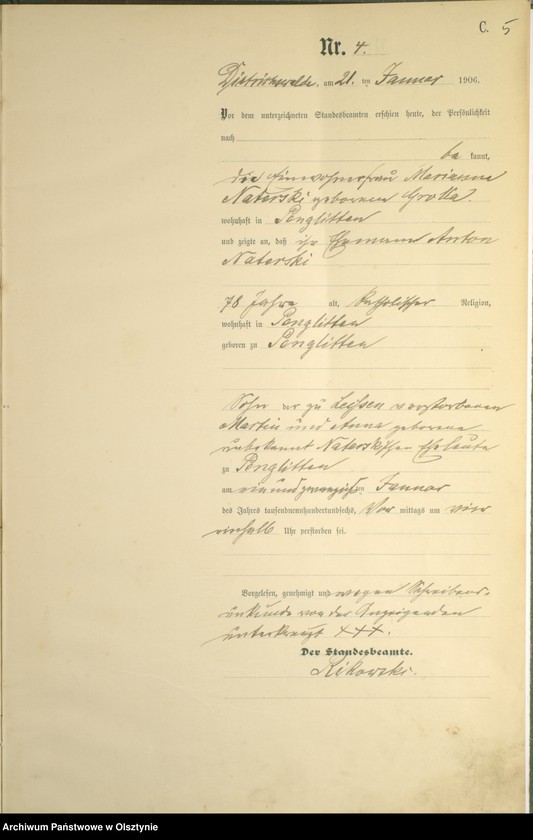 C. 5
Nr. 4.
Dietrichswalde, am 21. ten Januar 1906.
Vor dem unterzeichneten Standesbeamten erschien heute, der Persönlichkeit
nach
be kannt,
die Einwohnerfrau Marianne
Naterski geborene
wohnhaft in Penglitten
und zeigte an, daß ihr Ehemann Anton
Naterski
78 Jahre alt, katholischer Religion,
wohnhaft in Penglitten
geboren zu Penglitten
Sohn der zu Leißen verstorbenen
Martin und Anna geborene
unbekannt Naterskischen Eheleute
zu Penglitten
am ein und zwanzigsten Januar
des Jahres tausendneunhundertundsechs, Vor mittags um vier
einhalb Uhr verstorben sei.
Vorgelesen, genehmigt und wegen Schreibens-
unkunde von der Anzeigenden
unterkreuzt +++.
Der Standesbeamte.
Rikowski.
Archiwum Państwowe w Olsztynie